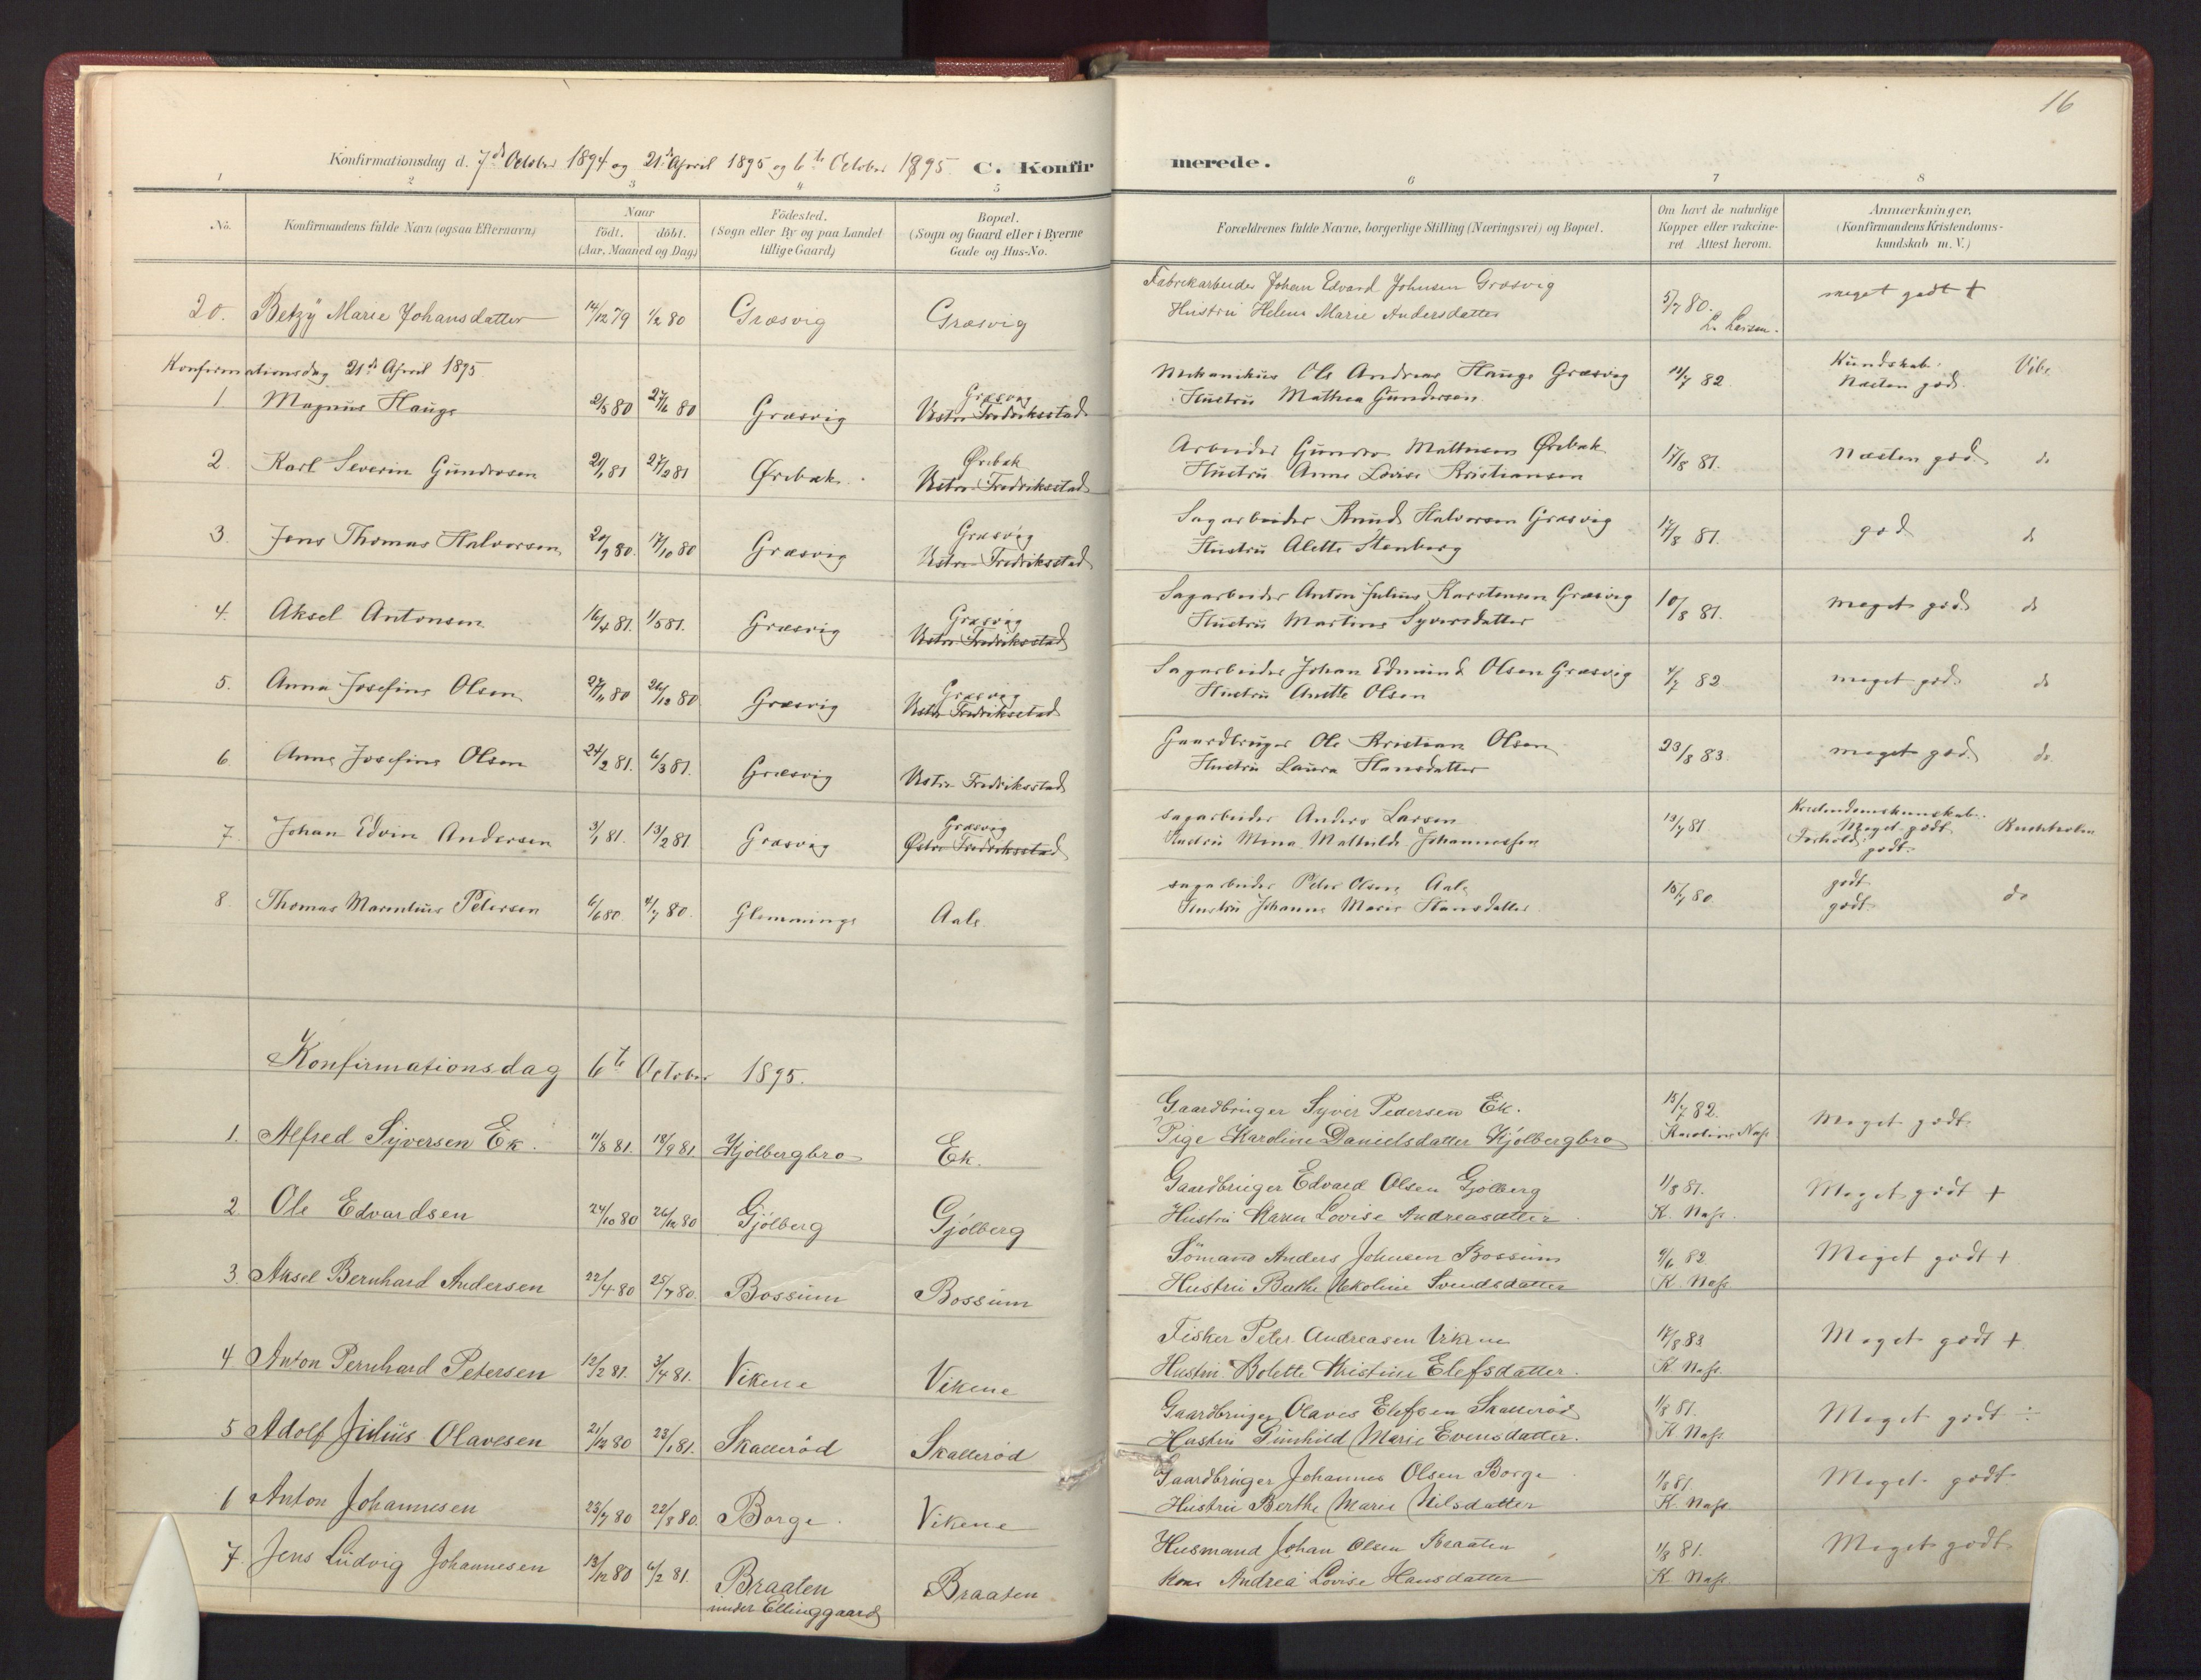 16
Konfirmationsdag d. 7de October 1894 og 21de April 1895 og 6te October 1895. C. Konfirmerede.
1 2 3 4 5 6 7 8
No. Konfirmandens fulde Navn (ogsaa Efternavn) Naar födt. döbt. (Aar, Maaned og Dag) Födested. (Sogn eller By og paa Landet tillige Gaard) Bopæl. (Sogn og Gaard eller i Byerne Gade og Hus-No. Forældrenes fulde Navne, borgerlige Stilling (Næringsvei) og Bopæl. Om havt de naturlige Kopper eller vakcineret Attest herom. Anmærkninger, (Konfirmandens Kristendomskundskab m. V.)
20. Betzÿ Marie Johansdatter 14/12 79 1/2 80 Græsvig Græsvig Fabrikarbeider Johan Edvard Johnsen Græsvig 5/7 80. meget godt +
Hustru Helene Marie Andersdatter L. Larsen.
Konfirmationsdag 21de April 1895
1 Magnus Hauge 2/5 80 27/6 80 Græsvig Græsvig Vestre Fredriksstad Mekanikus Ole Andreas Hauge Græsvig 11/7 82 Kundskab: Næsten god. Vibe
Hustru Mathea Gundersen
2. Karl Severin Gundersen 21/1 81 27/2 81 Ørebæk Ørebæk Vestre Fredriksstad Arbeider Gunder Mathisen Ørebæk 17/8 81. Næsten god do
Hustru Anne Lovise Kristiansen
3. Jens Thomas Halvorsen 20/9 80. 17/10 80 Græsvig Græsvig Vestre Fredriksstad Sagarbeider Halvorsen Græsvig 17/8 81. god do
Hustru Alette Stenberg
4. Aksel Antonsen 16/4 81. 1/5 81. Græsvig Græsvig Vestre Fredriksstad Sagarbeider Anton Julius Karstensen Græsvig 10/8 81. meget god do
Hustru Martine Syversdatter
5. Anna Josefine Olsen 27/11 80 26/12 80 Græsvig Græsvig Vestre Fredriksstad Sagarbeider Johan Edmund Olsen Græsvig 4/7 82 meget god do
Hustru Anette Olsen
6 Anne Josefine Olsen 24/2 81. 6/3 81. Græsvig Vestre Fredriksstad Gaardbruger Ole Kristian Olsen 23/8 83. meget god do
Hustru Laura Hansdatter
7. Johan Edvin Andersen 3/1 81. 13/2 81 Græsvig Græsvig Østre Fredriksstad sagarbeider Anders Larsen 13/7 81 Kristendomskunskab. Meget godt Forhold: godt. Buchholm
Hustru Mina Mathilde Johannessen
8. Thomas Petersen 6/6 80. 4/7 80. Glemminge Aale sagarbeider Peter Olsen Aale 15/7 80. godt godt do
Hustru Johanne Marie Hansdatter
Konfirmationsdag 6te October 1895.
1. Alfred Syversen Ek. 11/8 81. 18/9 81. Kjölbergbro Ek. Gaardbruger Syver Pedersen Ek. 15/7 82. Meget godt
Pige Karoline Danielsdatter Kjölbergbro Karoline Næss
2. Ole Edvardsen 24/10 80 26/12 80 Gjölberg Gjölberg Gaardbruger Edvard Olsen Gjölberg 1/8 81. Meget godt +
Hustru Karen Lovise Andreasdatter K. Næss.
3. Aksel Bernhard Andersen 22/4 80 25/7 80. Bossum Bossum Sömand Anders Johnsen Bossum 9/6 82 Meget godt +
Hustru Berthe Nekoline Svendsdatter K. Næss
4 Anton Pernhard Petersen 12/2 81. 3/4 81. Vikene Vikene Fisker Peter Andreasen Vikene 17/8 83 Meget godt +
Hustru Bolette Kristine Elefsdatter. K. Næss.
5 Adolf Julius Olavesen 21/12 80 23/1 81. Skallerød Skallerød Gaardbruger Olaves Elefsen Skallerød 1/8 81. Meget godt ÷
Hustru Gunhild Marie Evensdatter. K Næss
6 Anton Johannesen 23/7 80 22/8 80. Borge Vikene Gaardbruger Johannes Olsen Borge 1/8 81. Meget godt
Hustru Berthe Marie Nilsdatter K. Næss
7. Jens Ludvig Johannesen 13/12 80 6/2 81. Braaten under Ellinggaard Braaten Husmand Johan Olsen Braaten 1/8 81. Meget godt
Kone Andrea Lovise Hansdatter K Næss